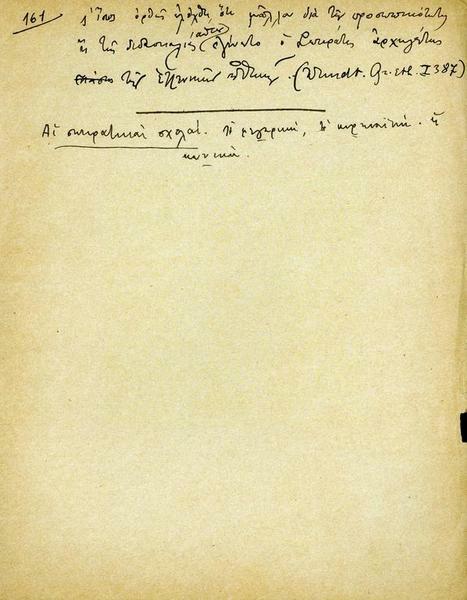 161 Ἴσως ὀρθῶς ἐλέχθη ὅτι μᾶλλον διὰ τὴν προσωπικότητα
ἢ τῆς διδασκαλίας αὐτοῦ ἐγένετο ὁ Σωκράτης ἀρχηγέτης
τῆς ἑλληνικῆς ἠθικῆς. (Wundt. Gr. eth. I 387)
Αἱ σωκρατικαὶ σχολαί. Ἡ μεγαρική, ἡ κυρηναϊκή. ἡ
κυνικά.